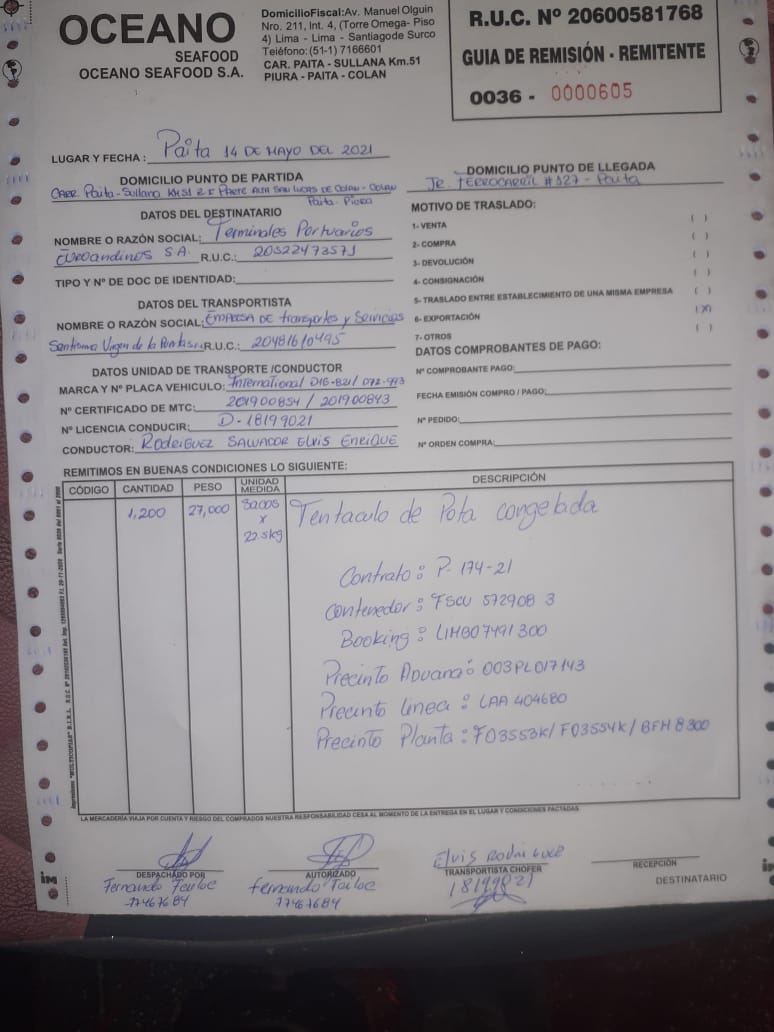 OCEANO
SEAFOOD
OCEANO SEAFOOD S.A.
DomicilioFiscal:Av. Manuel Olguin
Nro. 211, Int. 4, (Torre Omega- Piso
4) Lima - Lima - Santiagode Surco
Teléfono:(51-1) 7166601
CAR. PAITA - SULLANA Km.51
PIURA - PAITA - COLAN
R.U.C. Nº 20600581768
GUIA DE REMISIÓN - REMITENTE
0036 - 0000605
LUGAR Y FECHA: Paita 14 DE MAYO DEL 2021
DOMICILIO PUNTO DE PARTIDA
Carr. Paita-Sullana KM51 Parte Alta San Lucas de Colan - Colan
Paita - Piura
DOMICILIO PUNTO DE LLEGADA
Jr. FERROCARRIL #127 - Paita
DATOS DEL DESTINATARIO
NOMBRE O RAZÓN SOCIAL: Terminales Portuarios
Euroandinos S.A. R.U.C.: 20522473571
TIPO Y Nº DE DOC DE IDENTIDAD:
DATOS DEL TRANSPORTISTA
NOMBRE O RAZÓN SOCIAL: EMPRESA DE transportes y Servicios
Santisima Virgen de la R.U.C.: 20481610495
DATOS UNIDAD DE TRANSPORTE /CONDUCTOR
MARCA Y Nº PLACA VEHICULO: International D1G-821/ 072-993
Nº CERTIFICADO DE MTC: 201900854 / 201900843
Nº LICENCIA CONDUCIR: D-18199021
CONDUCTOR: RODRIGUEZ SALVADOR ELVIS ENRIQUE
MOTIVO DE TRASLADO:
1- VENTA ( )
2- COMPRA ( )
3- DEVOLUCIÓN ( )
4- CONSIGNACIÓN ( )
5- TRASLADO ENTRE ESTABLECIMIENTO DE UNA MISMA EMPRESA ( )
6- EXPORTACIÓN (X)
7- OTROS ( )
DATOS COMPROBANTES DE PAGO:
Nº COMPROBANTE PAGO:
FECHA EMISIÓN COMPRO / PAGO:
Nº PEDIDO:
Nº ORDEN COMPRA:
REMITIMOS EN BUENAS CONDICIONES LO SIGUIENTE:
CÓDIGO CANTIDAD PESO UNIDAD MEDIDA DESCRIPCIÓN
1,200 27,000 Sacos x 22.5kg Tentaculo de Pota congelada
Contrato: P-174-21
Contenedor: FSCU 572908 3
Booking: LIMB07491300
Precinto Aduana: 003PL017143
Precinto linea: LAA 404680
Precinto Planta: F03553K/ F03554K/ BFH8300
LA MERCADERÍA VIAJA POR CUENTA Y RIESGO DEL COMPRADOS NUESTRA RESPONSABILIDAD CESA AL MOMENTO DE LA ENTREGA EN EL LUGAR Y CONDICIONES PACTADAS
DESPACHADO POR
Fernando
77467684
AUTORIZADO
Fernando
77467684
Elvis Rodriguez
TRANSPORTISTA CHOFER
18199021
RECEPCIÓN
DESTINATARIO
im